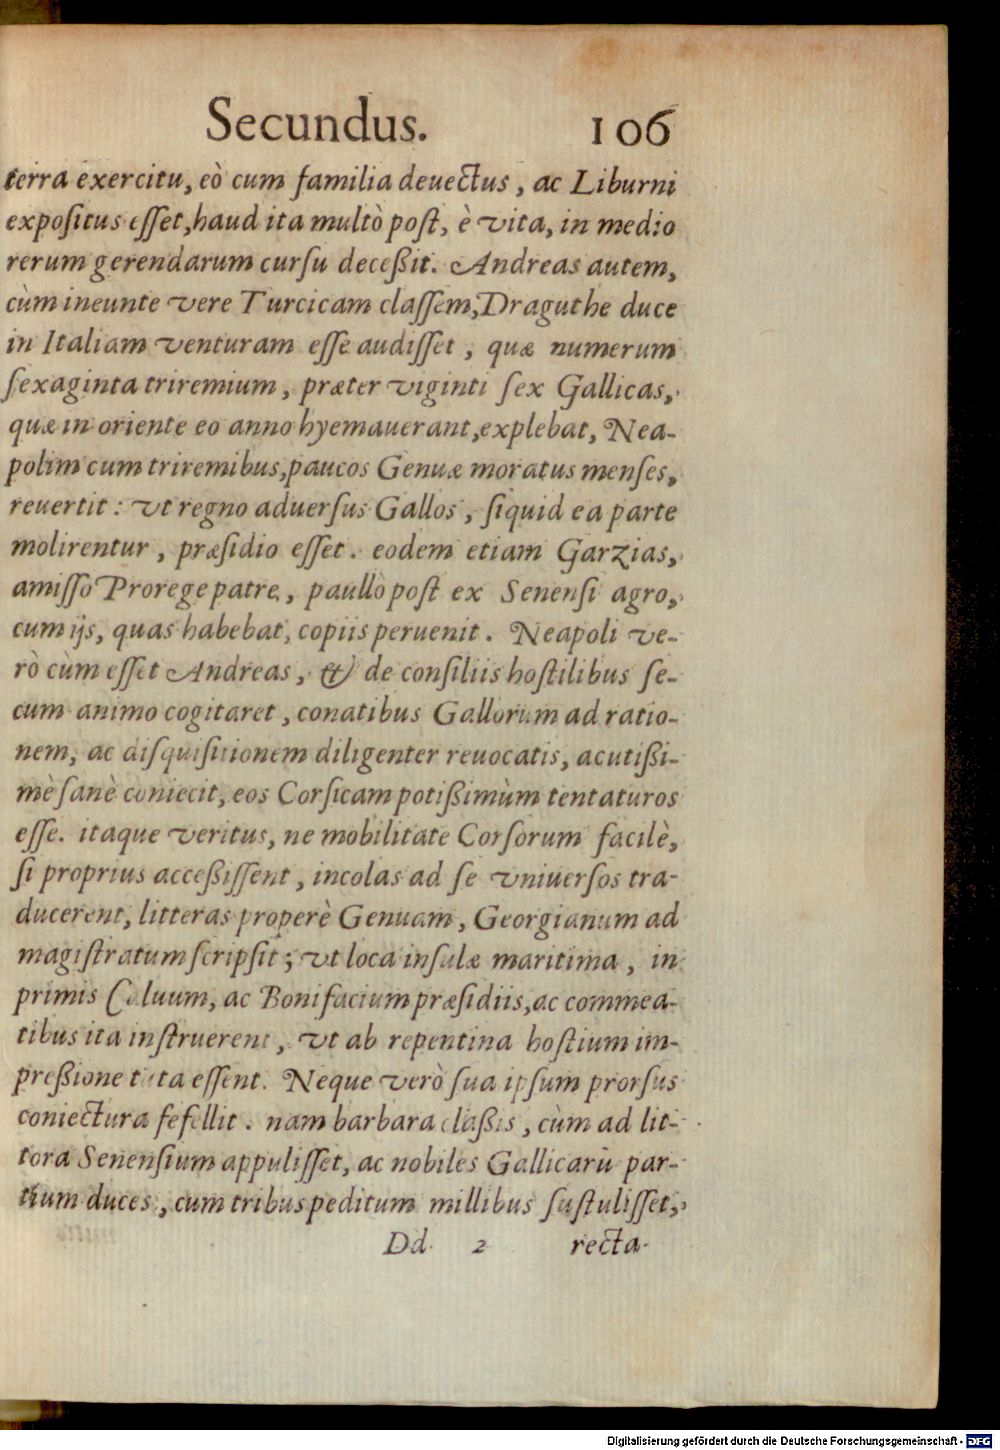 Secundus. 106
terra exercitu, eò cum familia deuectus, ac Liburni
expoſitus eſſet, haud ita multò poſt, è vita, in medio
rerum gerendarum curſu deceßit. Andreas autem,
cùm ineunte vere Turcicam claſſem, Draguthe duce
in Italiam venturam eſſe audiſſet, quæ numerum
ſexaginta triremium, præter viginti ſex Gallicas,
quæ in oriente eo anno hyemauerant, explebat, Nea-
polim cum triremibus, paucos Genuæ moratus menſes,
reuertit: vt regno aduerſus Gallos, ſiquid ea parte
molirentur, præſidio eſſet. eodem etiam Garzias,
amiſſo Prorege patre, paullò poſt ex Senenſi agro,
cum ijs, quas habebat, copiis peruenit. Neapoli ve-
rò cùm eſſet Andreas, & de conſiliis hoſtilibus ſe-
cum animo cogitaret, conatibus Gallorum ad ratio-
nem, ac diſquiſitionem diligenter reuocatis, acutißi-
mè ſanè coniecit, eos Corſicam potißimùm tentaturos
eſſe. itaque veritus, ne mobilitate Corſorum facilè,
ſi proprius acceßiſſent, incolas ad ſe vniuerſos tra-
ducerent, litteras properè Genuam, Georgianum ad
magiſtratum ſcripſit; vt loca inſulæ maritima, in
primis Caluum, ac Bonifacium præſidiis, ac commea-
tibus ita inſtruerent, vt ab repentina hoſtium im-
preßione tuta eſſent. Neque verò ſua ipſum prorſus
coniectura fefellit. nam barbara claßis, cùm ad lit-
tora Senenſium appuliſſet, ac nobiles Gallicarū par-
tium duces, cum tribus peditum millibus ſuſtuliſſet,
Dd 2 recta
Digitalisierung gefördert durch die Deutsche Forschungsgemeinschaft - DFG